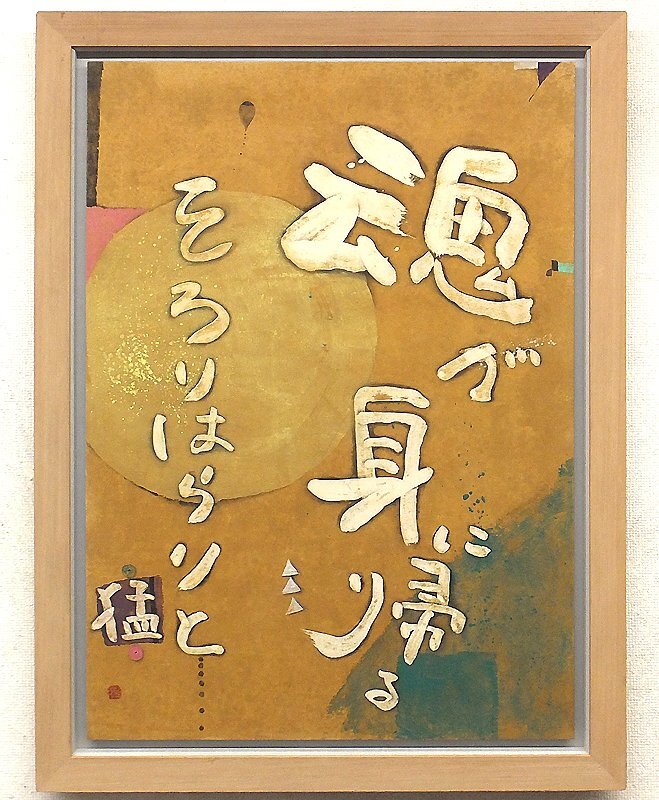 魂が身に帰る
そろりはらりと
猛